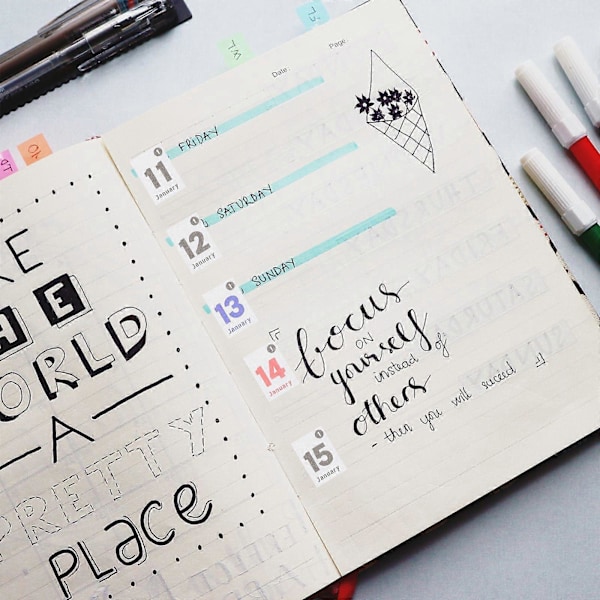 KE
HE
ORLD
A
PRETTY
Place
Date Page
11 January FRIDAY
12 January SATURDAY
13 January SUNDAY
14 January
focus
on
yourself
instead of
others
- then you will suceed
15 January